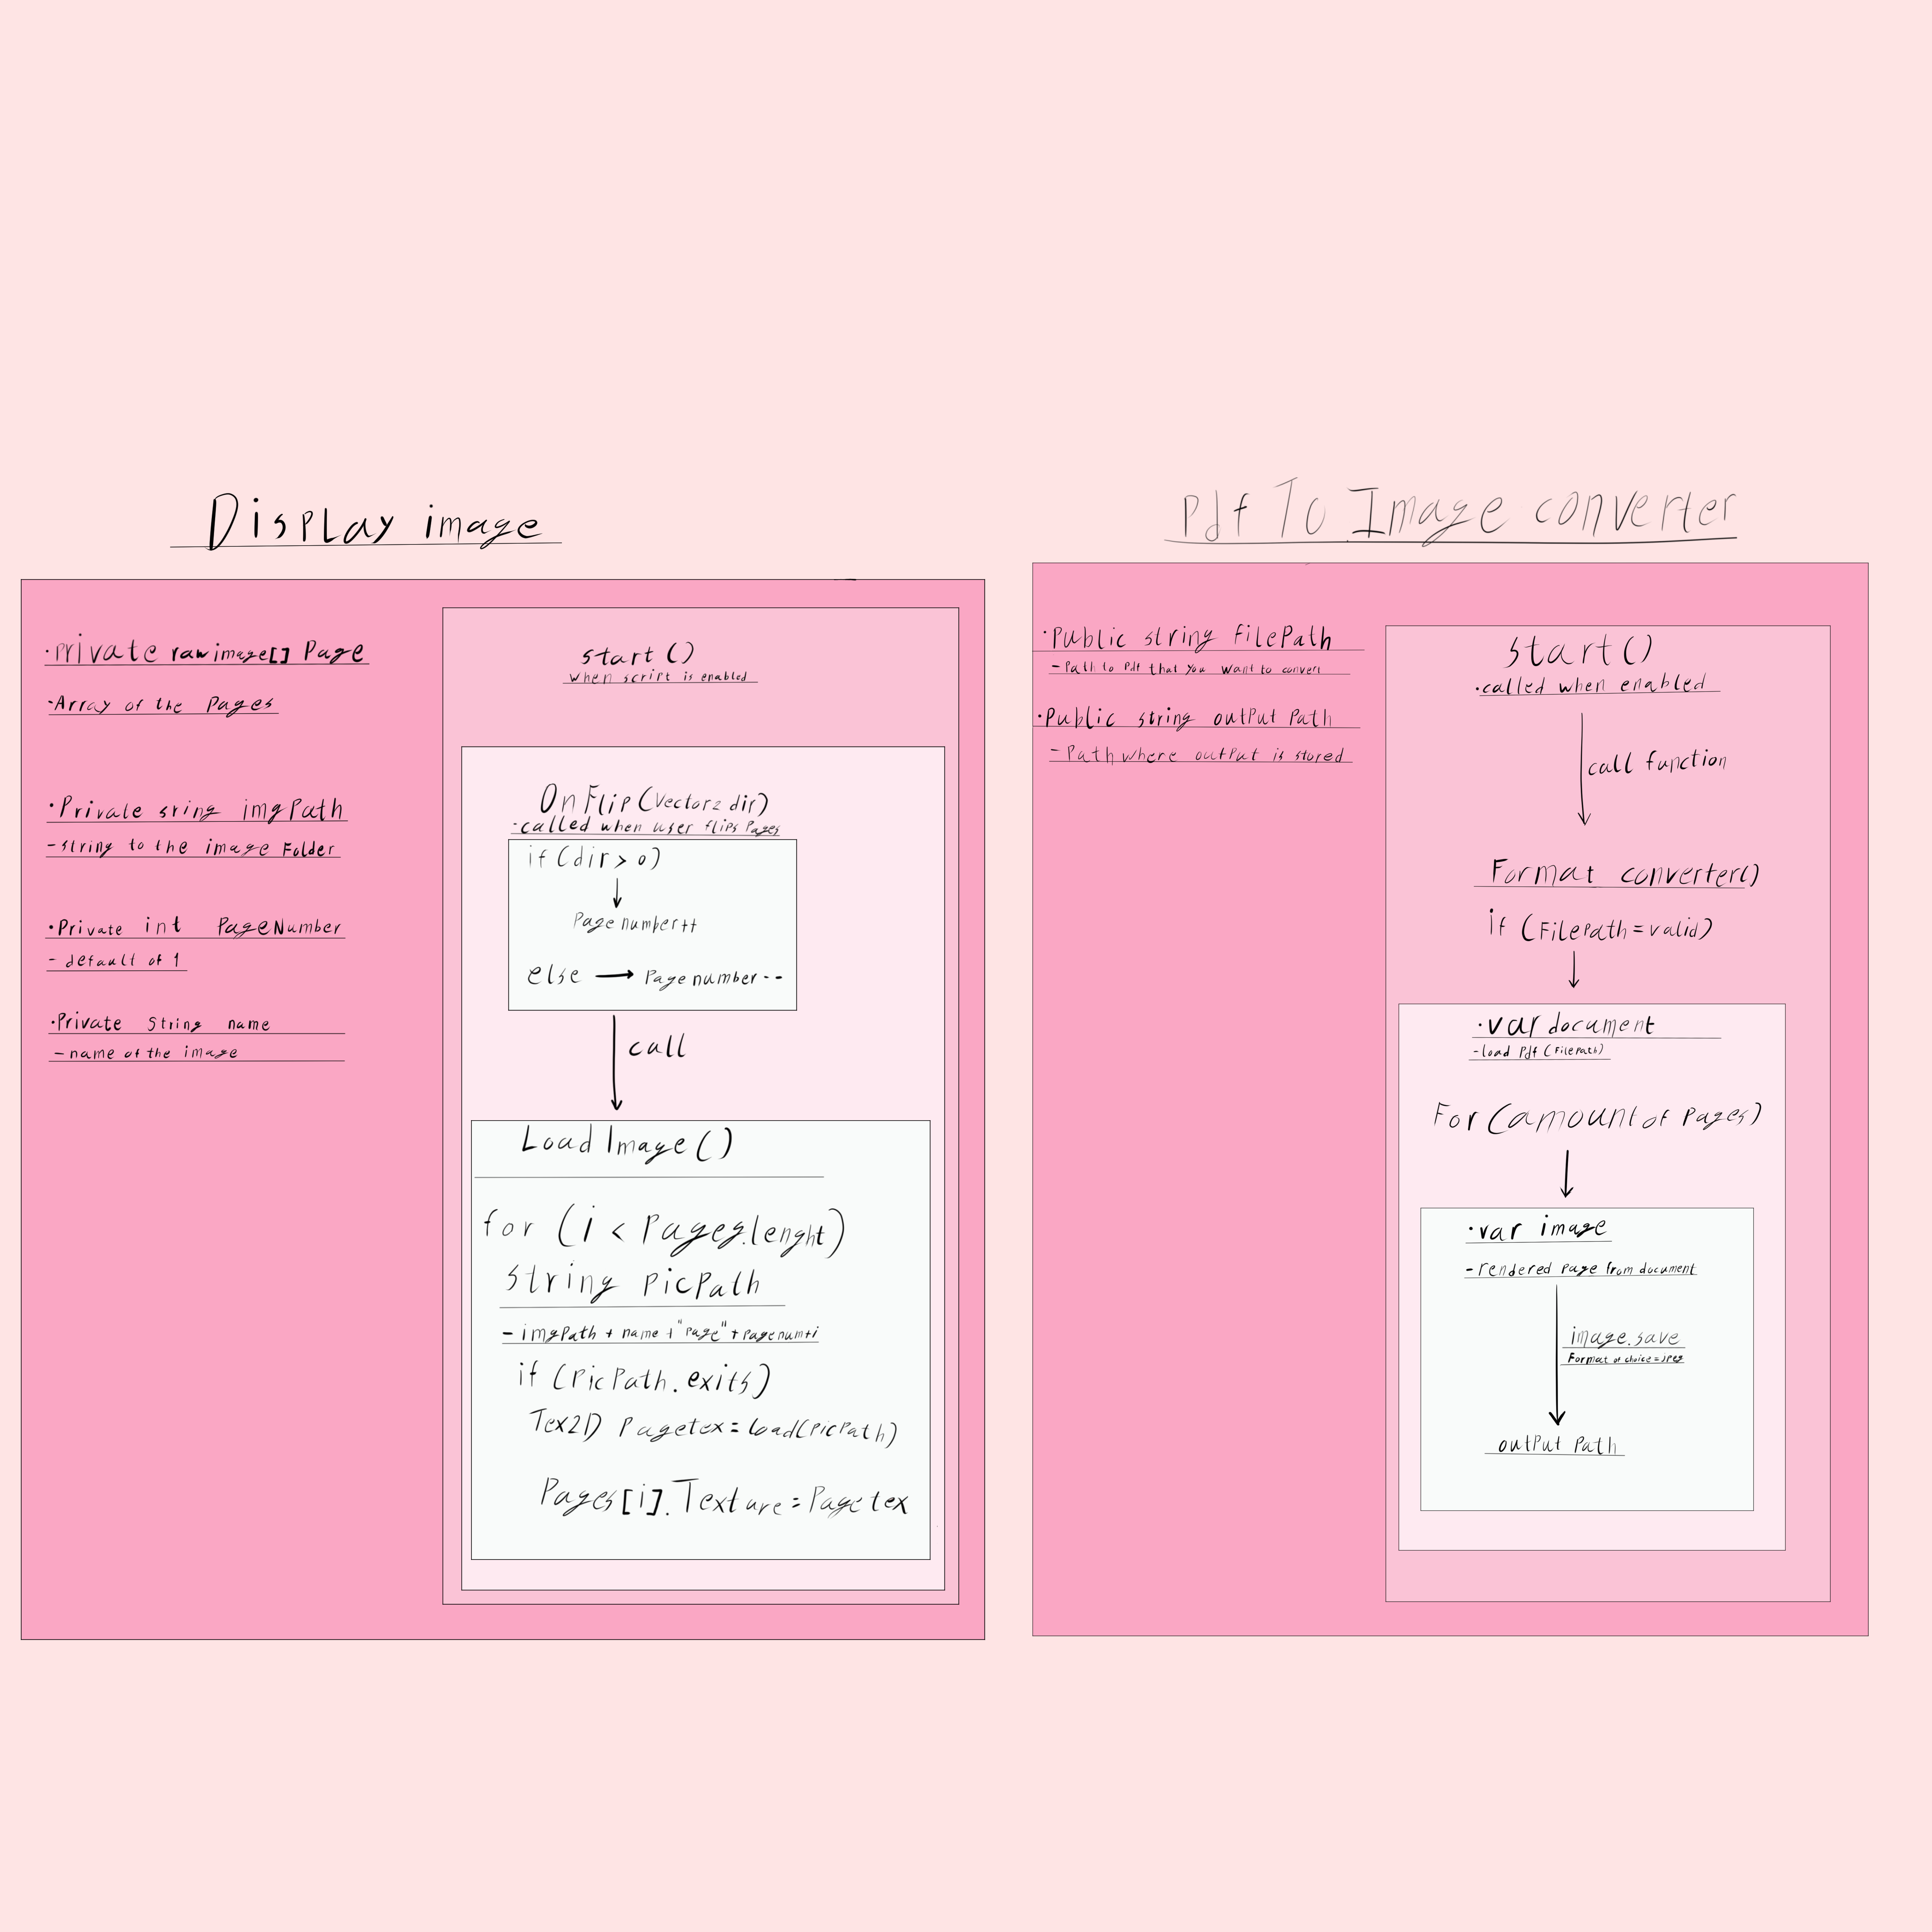 Display image
•private rawimage[] Page
•Array of the Pages
•Private sring imgPath
-string to the image Folder
•Private int PageNumber
- default of 1
•Private String name
-name of the image
start()
when script is enabled
OnFlip(Vector2 dir)
-called when user flips Pages
if(dir > 0)
Page number++
else → Page number--
call
Load Image()
for (i < Pages.lenght)
string PicPath
- imgPath + name + "Page" + Pagenum+i
if (PicPath.exits)
Tex2D Pagetex = load(PicPath)
Pages[i].Texture = Pagetex
Pdf To Image converter
•Public string filePath
-Path to Pdf that you want to convert
•Public string output Path
-Path where output is stored
start()
•called when enabled
call function
Format converter()
if (FilePath = valid)
•var document
-load Pdf (FilePath)
For (amount of Pages)
•var image
-rendered page from document
image.save
Format of choice = JPEG
output Path